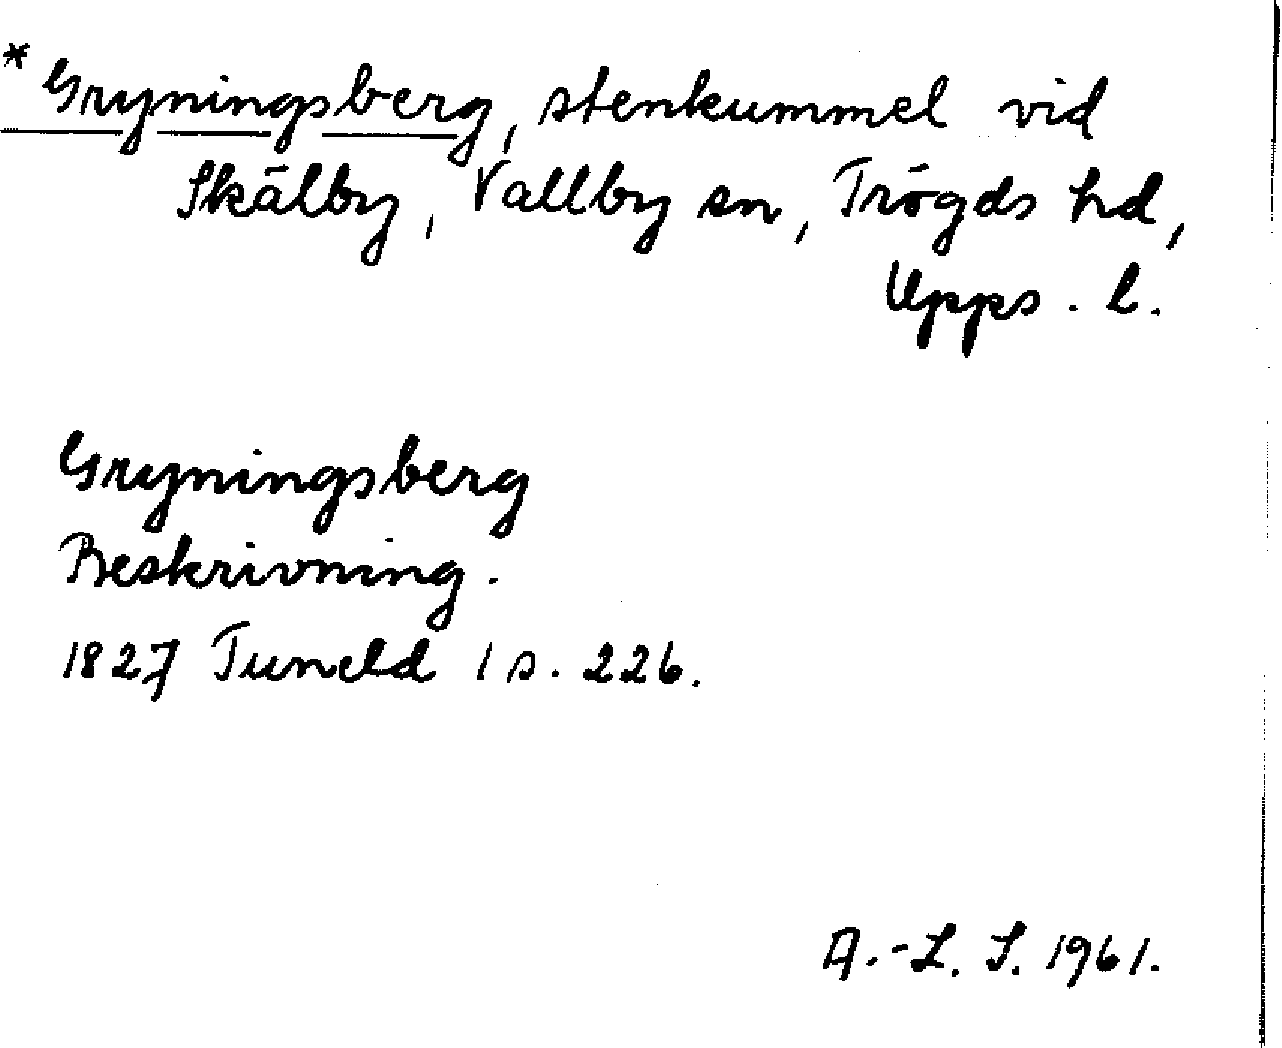 * Gryningsberg, stenkummel vid
Skälby, Vallby sn, Trögds hd,
Upps. l.
Gryningsberg
Beskrivning.
1827 Tuneld 1 s. 226.
A.-L. S. 1961.